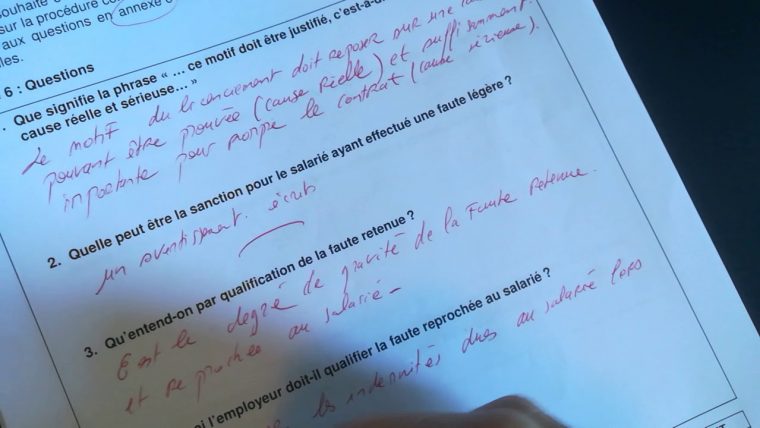 souhaite
sur la procédure co
aux questions en annexe
les.
6 : Questions
Que signifie la phrase « ... ce motif doit être justifié, c'est-à-d
cause réelle et sérieuse... »
Le motif du licenciement doit reposer sur une
pouvant être prouvée (cause Réelle) et suffisamment
importante pour rompre le contrat (cause sérieuse).
2. Quelle peut être la sanction pour le salarié ayant effectué une faute légère ?
un avertissement. écrit
3. Qu'entend-on par qualification de la faute retenue ?
C'est le degré de gravité de la Faute Retenue.
et Reprochée au salarié-
oi l'employeur doit-il qualifier la faute reprochée au salarié ?
les indemnités dues au salarié lors